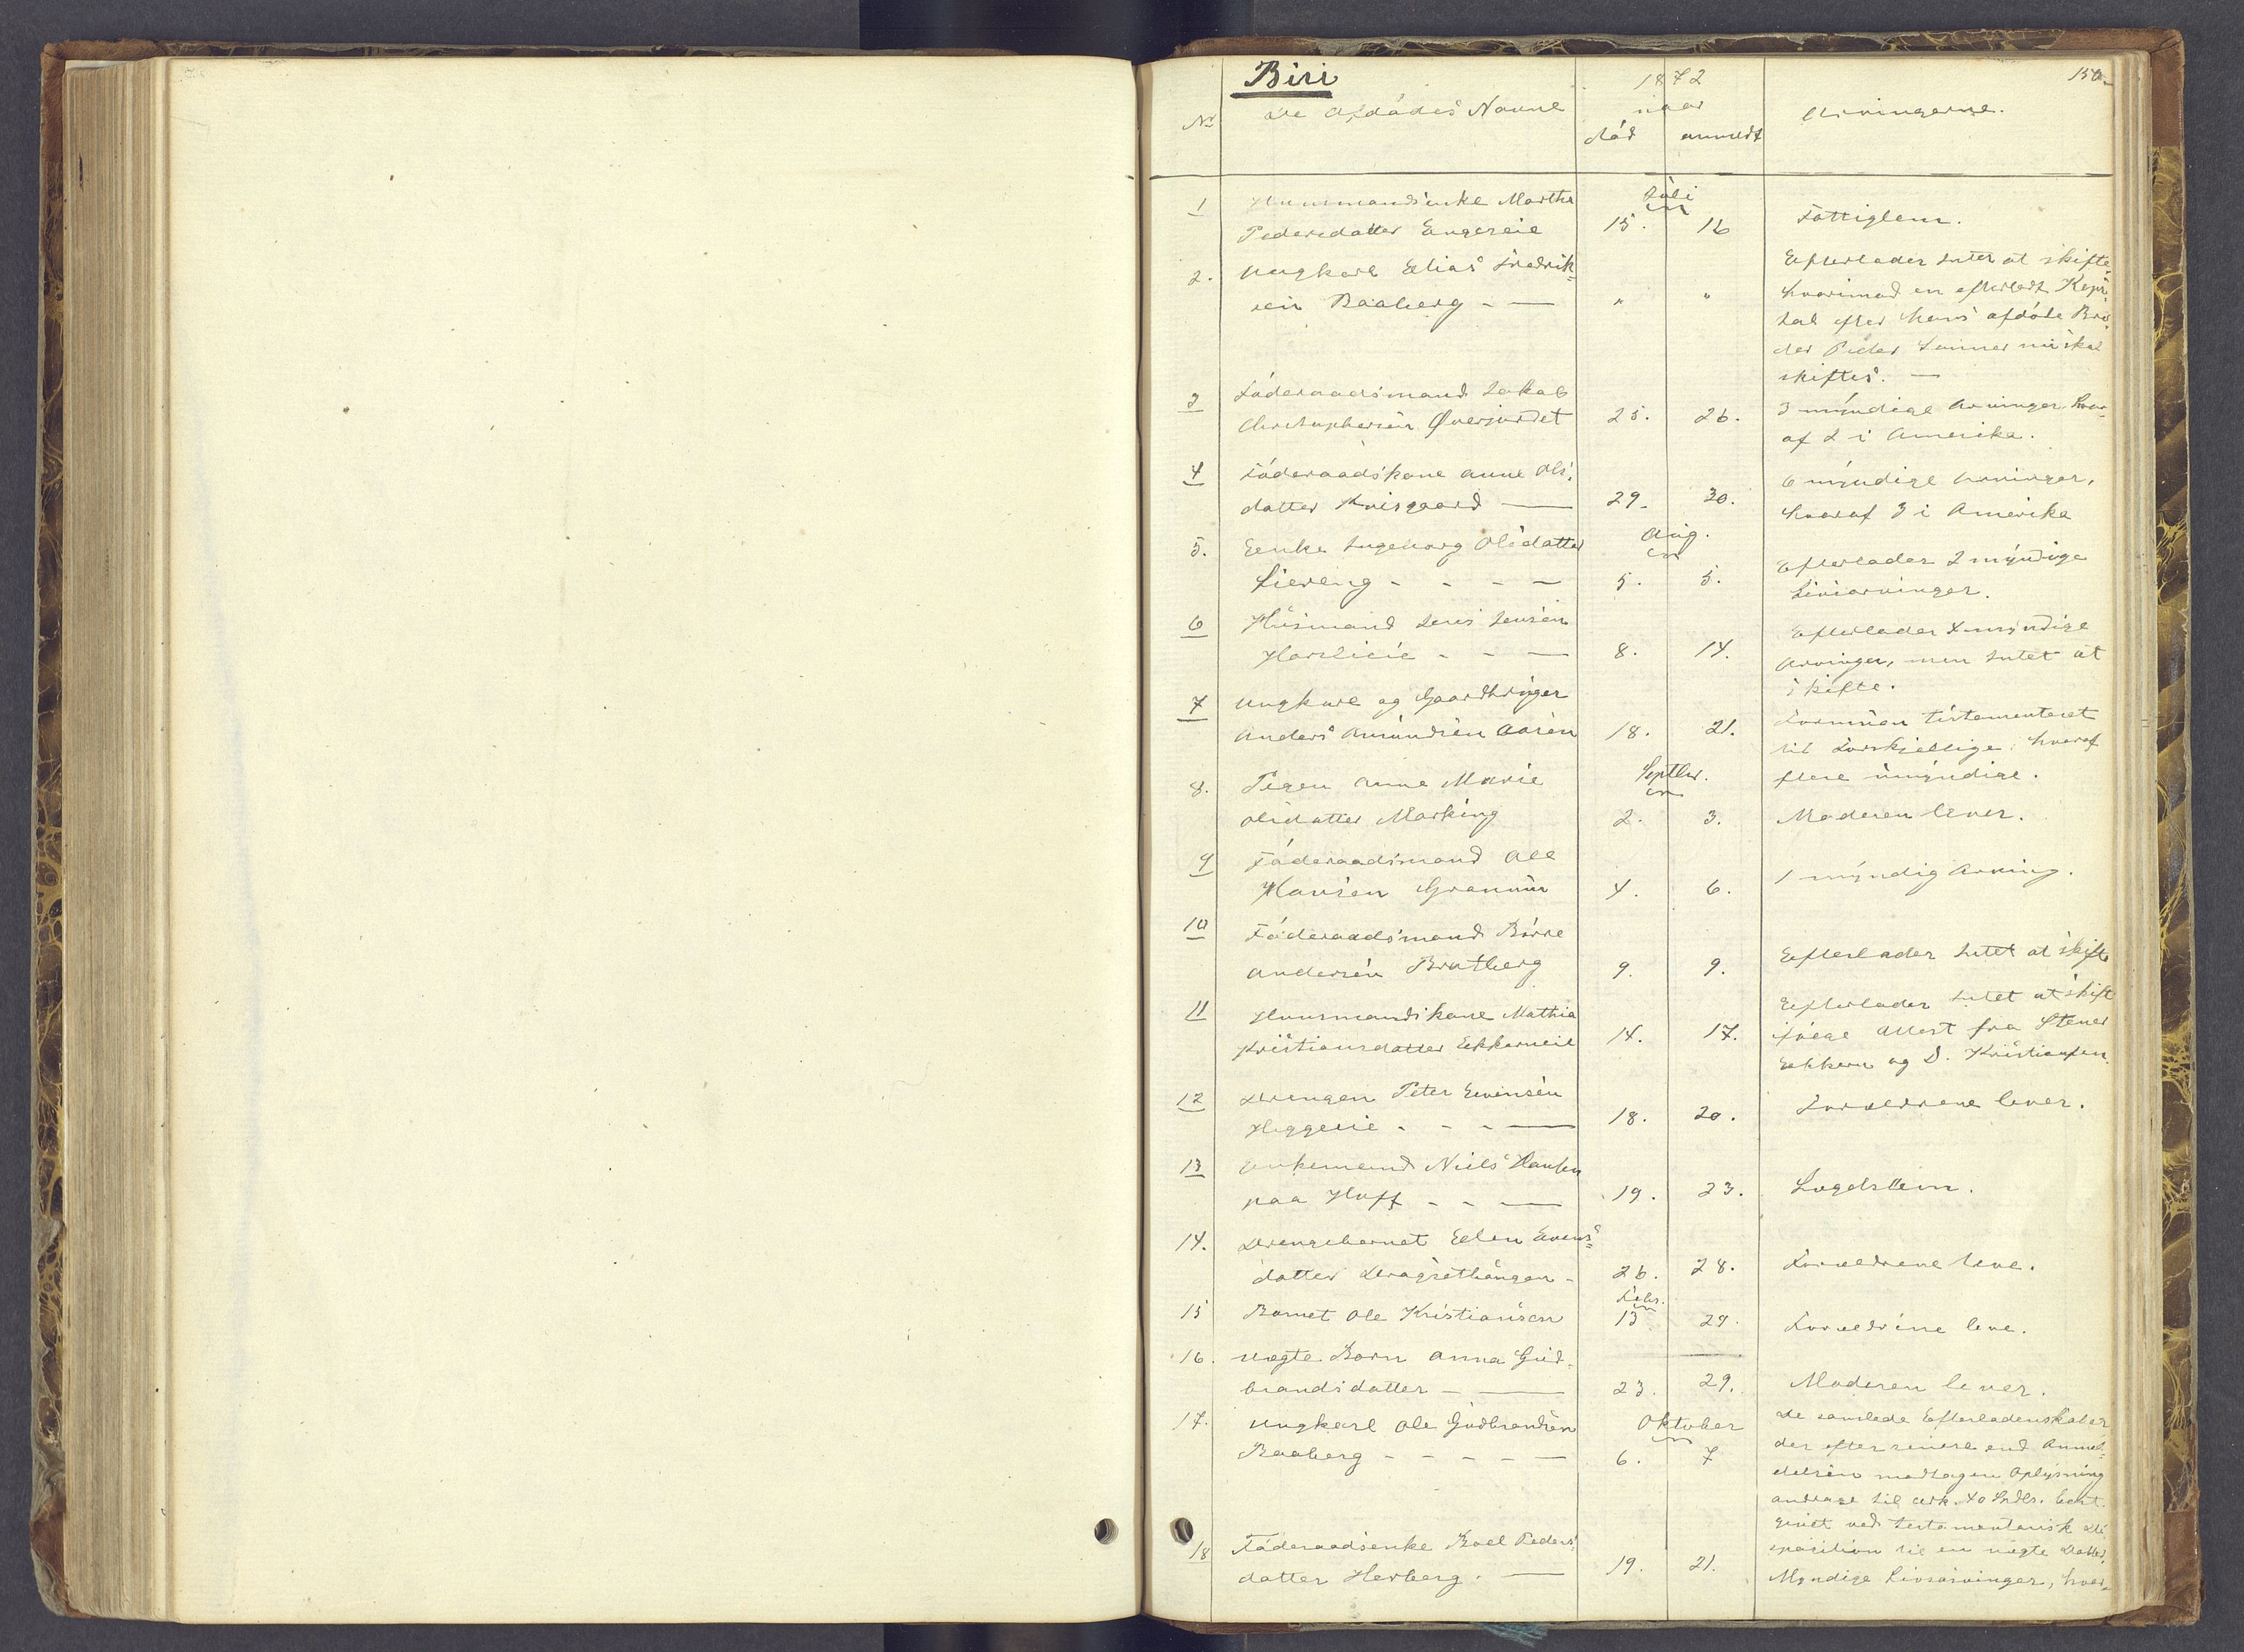 Biri
1872
150
No
De Afdödes Navne
naar
död
anmeldt
Arvingerne.
Juli
1
Huusmandsenke Marthe
Pedersdatter Engereie
15.
16
Fattiglem.
2.
Ungkarl Elias Fredrik-
sen Baaberg - —
"
"
Efterlader Intet at skifte,
hvorimod en efterladt Kapi-
tal efter hans afdöde Bro-
der Peder nu skal
skiftes. —
3
Föderaadsmand Jakob
Christophersen Øverjordet
25.
26.
3 myndige Arvinger hvor-
af 2 i Amerika.
4
Föderaadskone Anne Ols-
datter Kvisgaard —
29.
30.
6 myndige Arvinger,
hvoraf 3 i Amerika
Aug.
5.
Enke Ingeborg Olsdatter
Liereng - - - —
5.
5.
Efterlader 2 myndige
Livsarvinger.
6
Husmand Jens Jensen
- - —
8.
14.
Efterlader 4 myndige
Arvinger, men Intet at
skifte.
7
Ungkarl og Gaardbruger
Anders Amundsen Aasen
18.
21.
Formuen testamenteret
til Forskjellige, hvoraf
flere umyndige.
Septbr.
8.
Pigen Anne Marie
Olsdatter Marking
2.
3.
Moderen lever.
9
Föderaadsmand Ole
Hansen Granum
4.
6.
1 myndig Arving.
10
Föderaadsmand Börre
Andersen Bratberg
9.
9.
Efterlader Intet at skifte
11
Huusmandskone Mathia
Kristiansdatter Ekkerneie
14.
17.
Efterlader Intet at skift
ifölge Attest fra Stener
Ekkern og D. Kristiansen.
12
Drengen Peter Evensen
Heggeeie - - - —
18.
20.
Forældrene lever.
13
Enkemand Niels Hansen
paa Hoff - - —
19.
23.
Lægdslem.
14.
Drengebarnet Elen Evens-
datter -
26.
28.
Forældrene leve.
Febr.
15
Barnet Ole Kristiansen
13
29.
Forældrene leve.
16.
uægte Barn Anna Gud-
brandsdatter - —
23.
29.
Moderen lever.
Oktober
17.
Ungkarl Ole Gudbrandsen
Baaberg - - - - —
6.
7
De samlede Efterladenskaber
der efter senere end Anmel-
delsen modtagen Oplysning
andrage til cirk. 40 Spdlr. bort-
givet ved testamentarisk Di-
sposition til en uægte Datter.
18
Föderaadsenke Boel Peders-
datter Herberg. —
19.
21.
Myndige Livsarvinger, hvor-